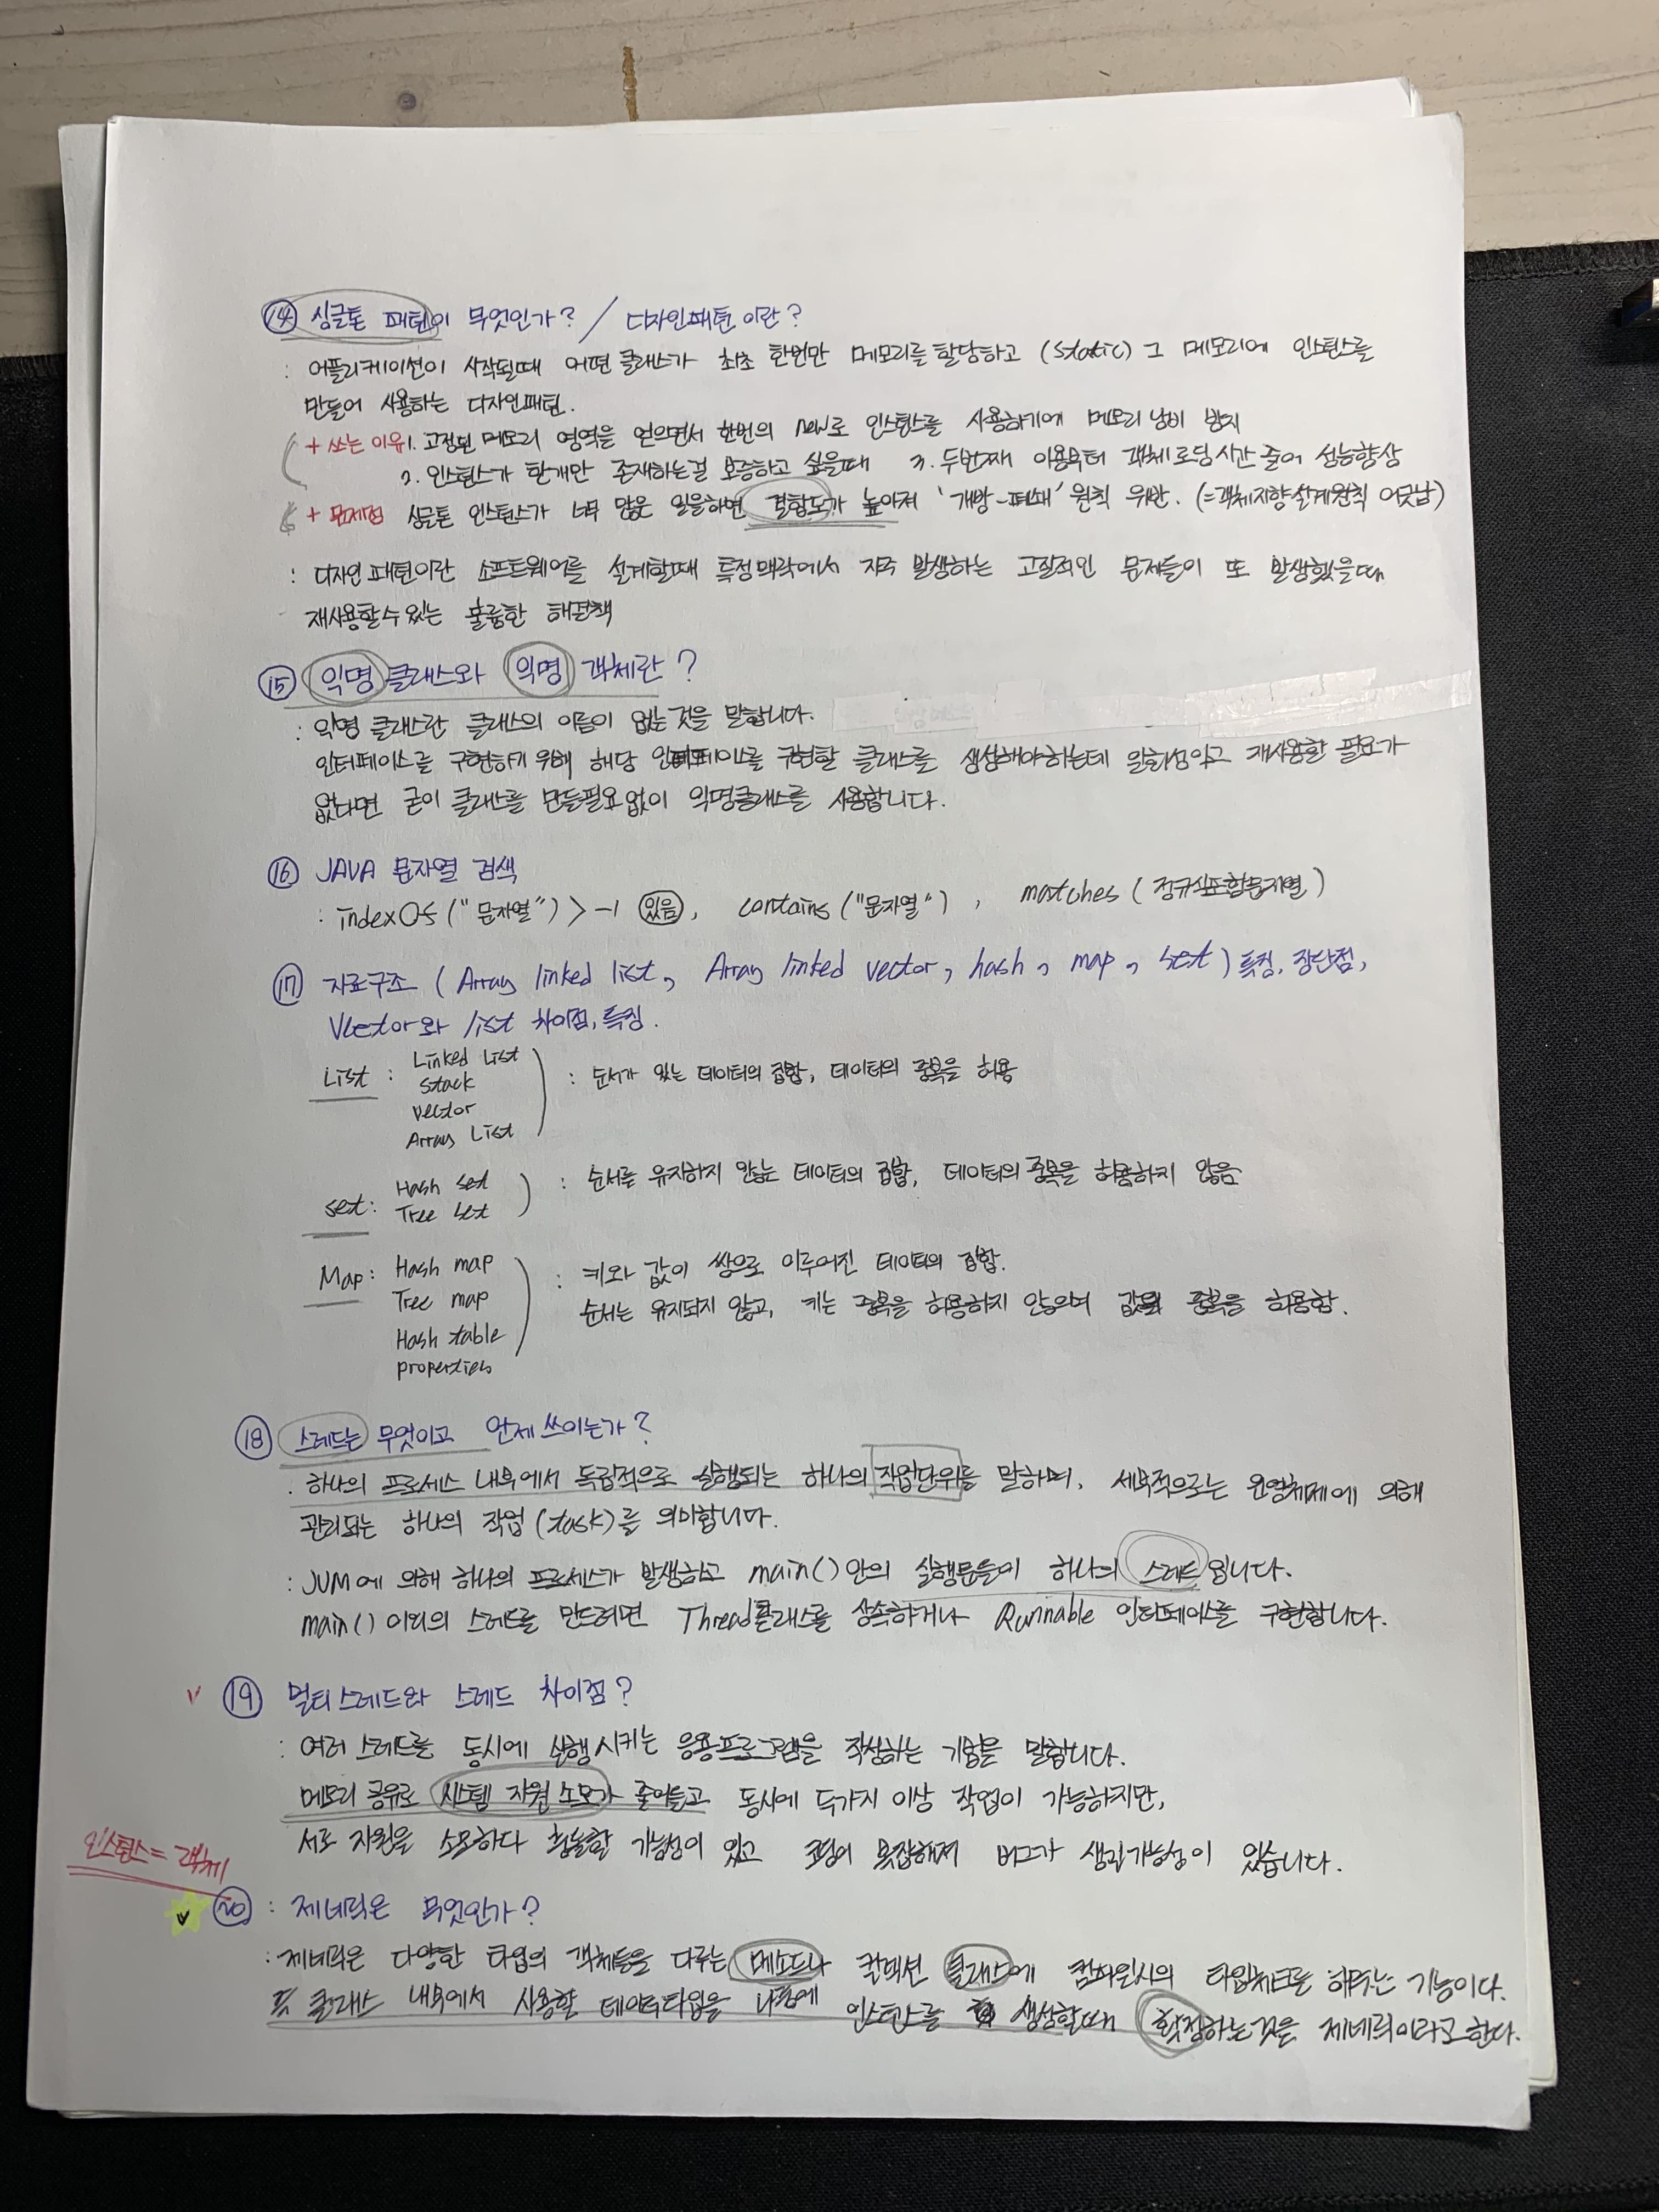 ⑭ 싱글톤 패턴이 무엇인가? / 디자인패턴 이란?
: 어플리케이션이 시작될때 어떤 클래스가 최초 한번만 메모리를 할당하고 (static) 그 메모리에 인스턴스를
만들어 사용하는 디자인패턴.
+ 쓰는 이유 1. 고정된 메모리 영역을 얻으면서 한번의 new로 인스턴스를 사용하기에 메모리 낭비 방지
2. 인스턴스가 한개만 존재하는걸 보증하고 싶을때 3. 두번째 이용부터 객체로딩시간 줄어 성능향상
+ 문제점 싱글톤 인스턴스가 너무 많은 일을하면 결합도가 높아져 '개방-폐쇄' 원칙 위반. (=객체지향설계원칙 어긋남)
: 디자인 패턴이란 소프트웨어를 설계할때 특정맥락에서 자주 발생하는 고질적인 문제들이 또 발생했을때
재사용할수있는 훌륭한 해결책
⑮ 익명 클래스와 익명 객체란?
: 익명 클래스란 클래스의 이름이 없는것을 말합니다.
인터페이스를 구현하기 위해 해당 인터페이스를 구현할 클래스를 생성해야하는데 일회성이고 재사용할 필요가
없다면 굳이 클래스를 만들필요없이 익명클래스를 사용합니다.
⑯ JAVA 문자열 검색
: indexOf ("문자열") > -1 있음, contains ("문자열") , matches (정규식포함문자열)
⑰ 자료구조 (Array linked list, Array linked vector, hash, map, set) 특징, 장단점,
Vector와 list 차이점, 특징.
List : Linked List
Stack
vector
Array List
: 순서가 있는 데이터의 집합, 데이터의 중복을 허용
set: Hash set
Tree set
: 순서를 유지하지 않는 데이터의 집합, 데이터의 중복을 허용하지 않음
Map: Hash map
Tree map
Hash table
properties
: 키와 값이 쌍으로 이루어진 데이터의 집합.
순서는 유지되지 않고, 키는 중복을 허용하지 않으며 값의 중복을 허용함.
⑱ 스레드는 무엇이고 언제쓰이는가?
: 하나의 프로세스 내부에서 독립적으로 실행되는 하나의 작업단위를 말하며, 세부적으로는 운영체제에 의해
관리되는 하나의 작업 (task)를 의미합니다.
: JVM에 의해 하나의 프로세스가 발생하고 main() 안의 실행문들이 하나의 스레드입니다.
main() 이외의 스레드를 만드려면 Thread클래스를 상속하거나 Runnable 인터페이스를 구현합니다.
✓ ⑲ 멀티스레드와 스레드 차이점?
: 여러 스레드를 동시에 실행시키는 응용프로그램을 작성하는 기법을 말합니다.
메모리 공유로 시스템 자원 소모가 줄어들고 동시에 두가지 이상 작업이 가능하지만,
서로 자원을 소모하다 충돌할 가능성이 있고 코딩이 복잡해져 버그가 생길가능성이 있습니다.
인스턴스 = 객체
✓ ⑳ : 제네릭은 무엇인가?
: 제네릭은 다양한 타입의 객체들을 다루는 메소드나 컬렉션 클래스에 컴파일시의 타입체크를 해주는 기능이다.
클래스 내부에서 사용할 데이터타입을 나중에 인스턴스를 생성할때 확정하는것을 제네릭이라고 한다.